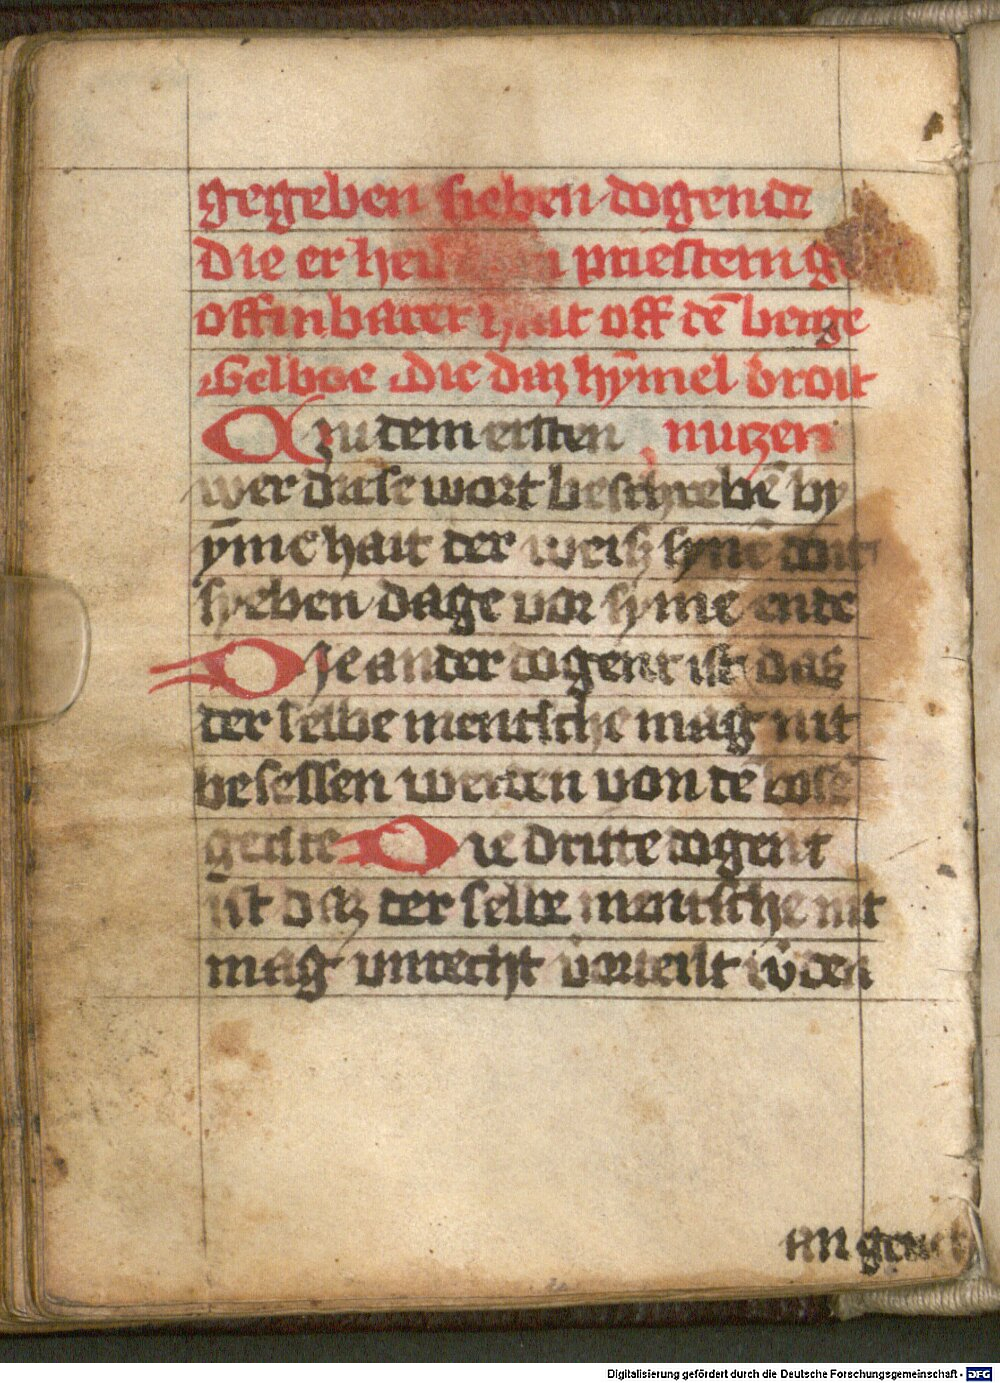 gegeben sieben dogende
die er priestern ge
offinbaret hait off dē berge
Gelboe Die daz hȳmel broit
zu dem ersten nutzen
wer diese wort beschrebē by
ȳme hait der weiß synē doit
syeben dage vor syme ende
Die ander dogent ist daz
der selbe mentsche mag nit
besessen werden von dē bosē
geiste Die dritte dogent
ist daz der selbe mentsche nit
mag unrecht vorteilt w̄den
an
Digitalisierung gefördert durch die Deutsche Forschungsgemeinschaft - DFG